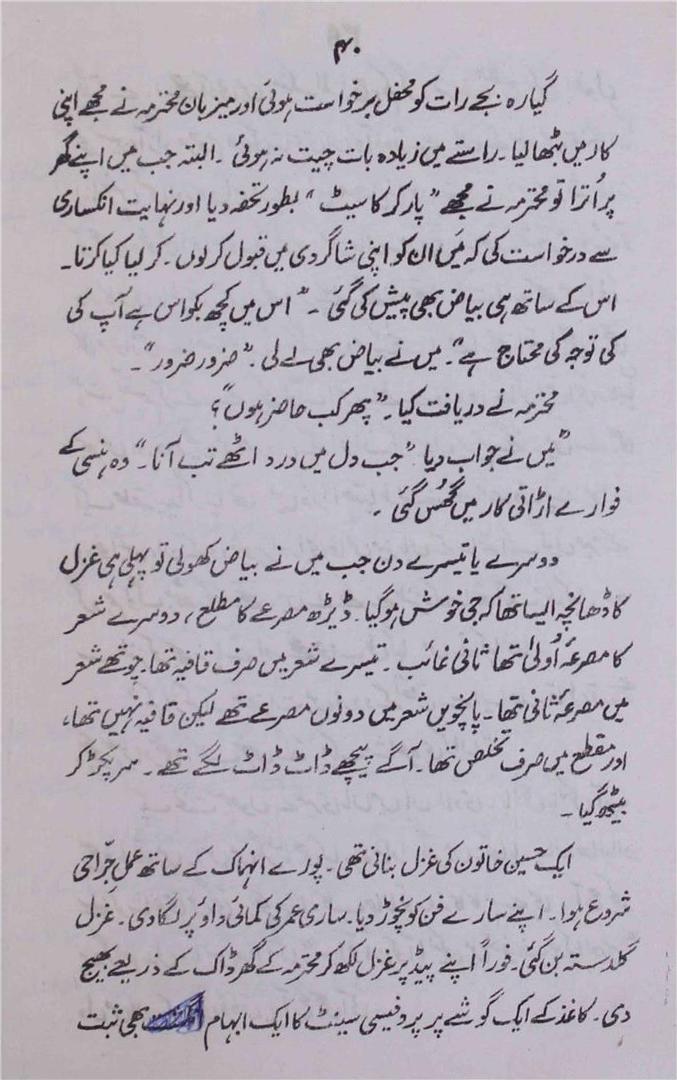 ۴۰
گیارہ بجے رات کو محفل برخواست ہوئی اور میزبان محترمہ نے مجھے اپنی
کار میں بٹھا لیا۔ راستے میں زیادہ بات چیت نہ ہوئی۔ البتہ جب میں اپنے گھر
پر اُترا تو محترمہ نے مجھے "پارکر کا سیٹ" بطور تحفہ دیا اور نہایت انکساری
سے درخواست کی کہ میں ان کو اپنی شاگردی میں قبول کر لوں۔ کر لیا کیا کرتا۔
اس کے ساتھ ہی بیاض بھی پیش کی گئی۔ "اس میں کچھ بکواس ہے آپ کی
کی توجہ کی محتاج ہے"۔ میں نے بیاض بھی لے لی۔ "ضرور ضرور"۔
محترمہ نے دریافت کیا۔ "پھر کب حاضر ہوں"؟
"میں نے جواب دیا "جب دل میں درد اٹھے تب آنا۔" وہ ہنسی کے
فوارے اڑاتی کار میں گھُس گئی۔
دوسرے یا تیسرے دن جب میں نے بیاض کھولی تو پہلی ہی غزل
کا ڈھانچہ ایسا تھا کہ جی خوش ہو گیا۔ ڈیڑھ مصرعے کا مطلع، دوسرے شعر
کا مصرعۂ اُولیٰ تھا ثانی غائب۔ تیسرے شعر میں صرف قافیہ تھا۔ چوتھے شعر
میں مصرعۂ ثانی تھا۔ پانچویں شعر میں دونوں مصرعے تھے لیکن قافیہ نہیں تھا،
اور مقطع میں صرف تخلص تھا۔ آگے پیچھے ڈاٹ ڈاٹ لگے تھے۔ سر پکڑ کر
بیٹھ گیا۔
ایک حسین خاتون کی غزل بنانی تھی۔ پورے انہماک کے ساتھ عملِ جرّاحی
شروع ہوا۔ اپنے سارے فن کو نچوڑ دیا۔ ساری عمر کی کمائی داؤ پر لگا دی۔ غزل
گلدستہ بن گئی۔ فوراً اپنے پیڈ پر غزل لکھ کر محترمہ کے گھر ڈاک کے ذریعے بھیج
دی۔ کاغذ کے ایک گوشے پر پروفیسی سینٹ کا ایک ابہام بھی ثبت